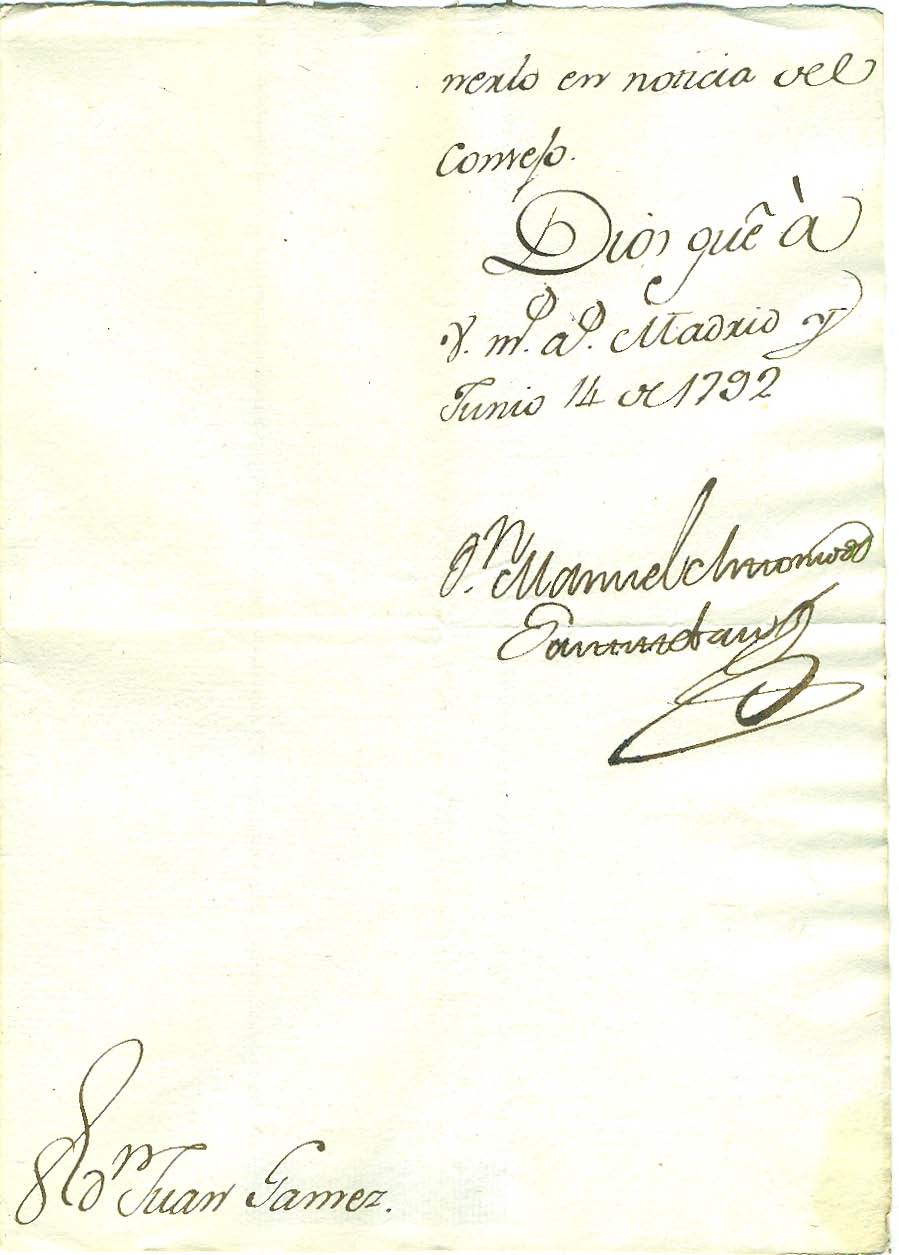 nerlo en noticia del
Consejo.
Dios gue à
V. ms. as. Madrid y
Junio 14 de 1792
Dn. Manuel Antonio de
Santistevan
Sr. Dn Juan Gamez.